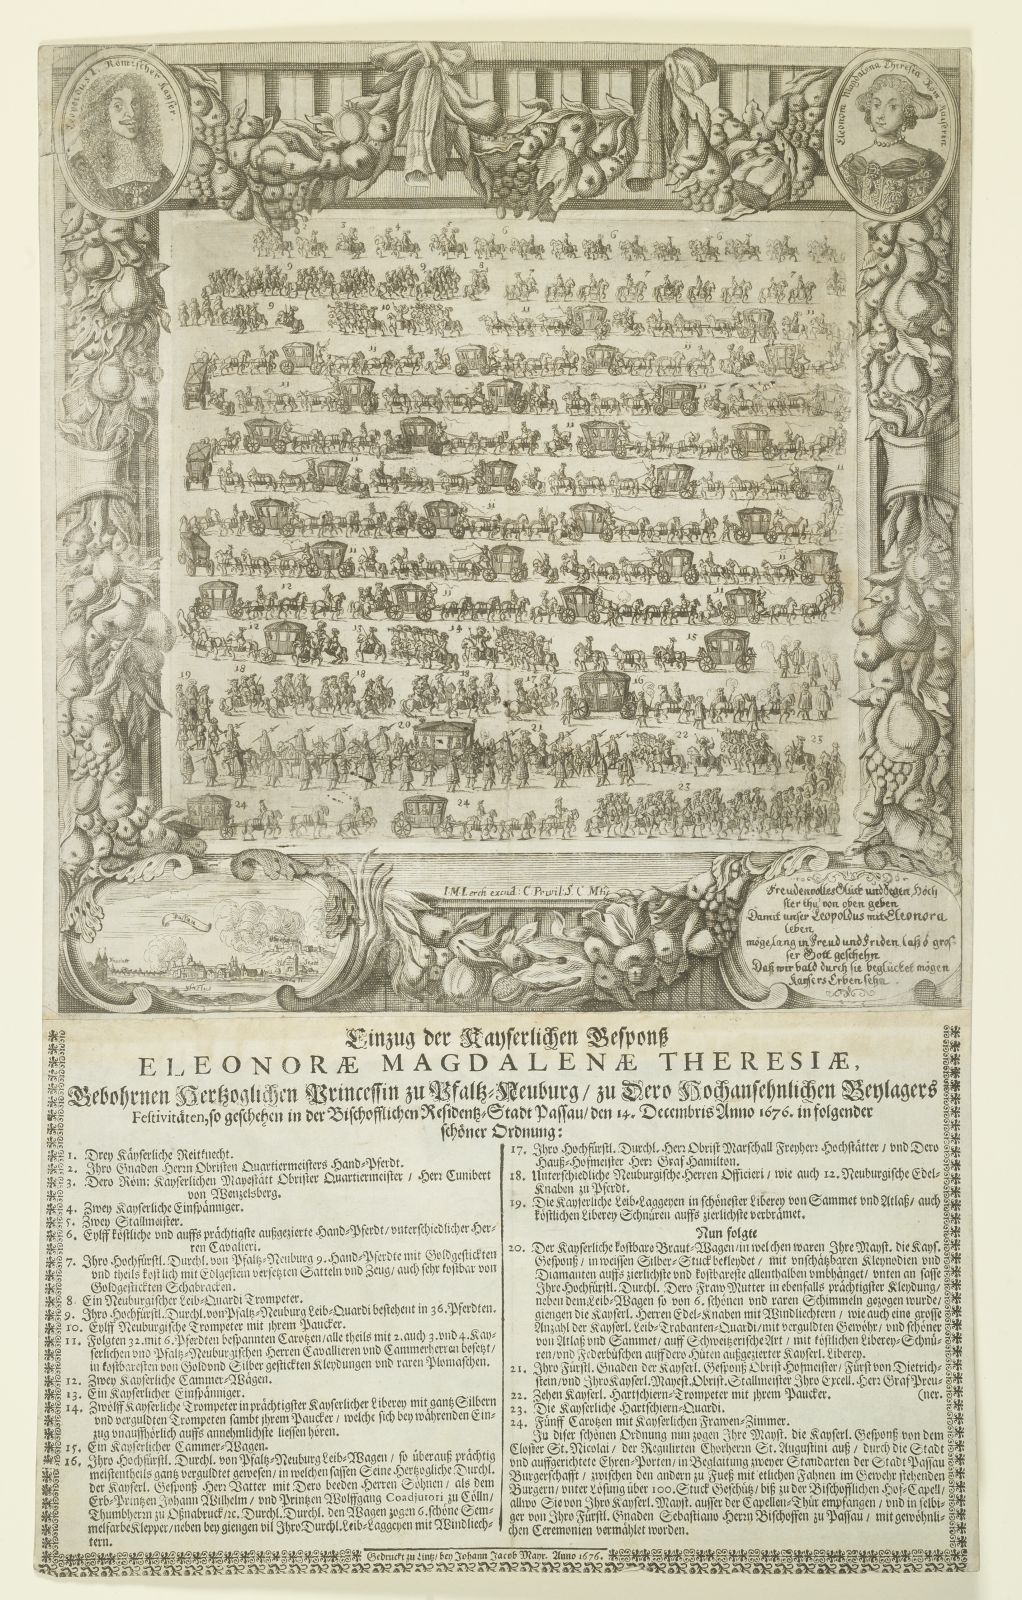 Leopoldus I. Römischer Keyser.
Eleonora Magdalena Theresia Röm. Kayserin
Passau
I. M. Lerch excud: C. Privil. S. C. Mtis
Freudenvolles Glück und Segen Höch
ster thu von oben geben
Damit unser Leopoldus mit Eleonora
leben,
möge lang in Freud und Friden laß ô gros-
ser Gott geschehn
Daß wir bald durch sie beglücket mögen
Kaysers Erben sehn.
Einzug der Kayserlichen Gesponß
ELEONORÆ MAGDALENÆ THERESIÆ,
Gebohrnen Hertzoglichen Princessin zu Pfaltz-Neuburg / zu Dero Hochansehnlichen Beylagers
Festivitäten, so geschehen in der Bischofflichen Residentz-Stadt Passau / den 14. Decembris Anno 1676. in folgender
schöner Ordnung:
1. Drey Käyserliche Reitknecht.
2. Ihro Gnaden Herrn Obristen Quartiermeisters Hand-Pferdt.
3. Dero Röm: Kayserlichen Mayestätt Obrister Quartiermeister / Herr Cunibert
von Wenzelsberg.
4. Zwey Kayserliche Einspänniger.
5. Zwey Stallmaister.
6. Eylff köstliche und auffs prächtigste außgezierte Hand-Pferdt / unterschiedlicher Her-
ren Cavalieri.
7. Ihro Hochfürstl. Durchl. von Pfaltz-Neuburg 9. Hand-Pferdte mit Goldgestickten
und theils kostlich mit Edlgestein versetzten Satteln und Zeug / auch sehr kostbar von
Goldgestickten Schabracken.
8. Ein Neuburgischer Leib-Quardi Trompeter.
9. Ihro Hochfürstl. Durchl. von Pfaltz-Neuburg Leib-Quardi bestehent in 36. Pferdten.
10. Eylff Neuburgische Trompeter mit jhrem Paucker.
11. Folgten 32. mit 6. Pferdten bespannten Carotzen / alle theils mit 2. auch 3. und 4. Kay-
serlichen und Pfaltz-Neuburgischen Herren Cavallieren und Cammerherren besetzt /
in kostbaresten von Gold und Silber gestickten Kleydungen und raren Plomaschen.
12. Zwey Kayserliche Cammer-Wägen.
13. Ein Kayserlicher Einspänniger.
14. Zwölff Kayserliche Trompeter in prächtigster Kayserlicher Liberey mit gantz Silbern
und verguldten Trompeten sambt jhrem Paucker / welche sich bey währenden Ein-
zug unauffhörlich auffs annehmlichste liessen hören.
15. Ein Kayserlicher Cammer-Wagen.
16. Ihro Hochfürstl. Durchl. von Pfaltz-Neuburg Leib-Wagen / so überauß prächtig
meistentheils gantz verguldtet gewesen / in welchen sassen Seine Hertzogliche Durchl.
der Kayserl. Gesponß Herr Vatter mit Dero beeden Herren Söhnen / als dem
Erb-Printzen Johann Wilhelm / und Printzen Wolffgang Coadjutori zu Cölln /
Thumbherrn zu Oßnabruck / rc. Durchl. Durchl. den Wagen zogen 6. schöne Sem-
melfarbe Klepper / neben bey giengen vil Ihro Durchl. Leib-Laggeyen mit Windliech-
tern.
17. Ihro Hochfürstl. Durchl. Herr Obrist Marschall Freyherr Hochstätter / und Dero
Hauß-Hofmeister Herr Graf Hamilton.
18. Unterschiedliche Neuburgische Herren Officieri / wie auch 12. Neuburgische Edel-
Knaben zu Pferdt.
19. Die Kayserliche Leib-Laggeyen in schönester Liberey von Sammet und Atlaß / auch
köstlichen Liberey Schnüren auffs zierlichste verbrämet.
Nun folgte
20. Der Kayserliche kostbare Braut-Wagen / in welchen waren Ihre Mayst. die Kays.
Gesponß / in weissen Silber-Stuck bekleydet / mit unschätzbaren Kleynodien und
Diamanten auffs zierlichste und kostbareste allenthalben umbhänget / unten an sasse
Ihre Hochfürstl. Durchl. Dero Fraw Mutter in ebenfalls prächtigster Kleydung /
neben dem Leib-Wagen so von 6. schönen und raren Schimmeln gezogen wurde /
giengen die Kayserl. Herren Edel-Knaben mit Windliechtern / wie auch eine grosse
Anzahl der Kayserl. Leib-Trabanten-Quardi / mit verguldten Gewöhr / und schöner
von Atlaß und Sammet / auff Schweitzerische Art / mit köstlichen Liberey-Schnü-
ren / und Federbüschen auff den Hüten außgezierter Kayserl. Liberey.
21. Ihro Fürstl. Gnaden der Kayserl. Gesponß Obrist Hofmeister / Fürst von Dietrich-
stein / und Ihro Kayserl. Mayest. Obrist. Stallmeister Ihro Excell. Herr Graf Preu-
22. Zehen Kayserl. Hartschiern-Trompeter mit jhrem Paucker. (ner.
23. Die Kayserliche Hartschiern-Quardi.
24. Fünff Carotzen mit Kayserlichen Frawen-Zimmer.
In diser schönen Ordnung nun zogen Ihre Mayst. die Kayserl. Gesponß von dem
Closter St. Nicolai / der Regulirten Chorherrn St. Augustini auß / durch die Stadt
und auffgerichtete Ehren-Porten / in Begleitung zweyer Standarten der Stadt Passau
Burgerschafft / zwischen den andern zu Fueß mit etlichen Fahnen im Gewehr stehenden
Burgern / unter Lösung über 100. Stuck Geschütz / biß zu der Bischofflichen Hof-Capell /
allwo Sie von Ihro Kayserl. Mayst. ausser der Capellen-Thür empfangen / und in selbi-
ger von Ihro Fürstl. Gnaden Sebastiano Herrn Bischoffen zu Passau / mit gewöhnli-
chen Ceremonien vermählet worden.
Gedruckt zu Lintz / bey Johann Jacob Mayr. Anno 1676.